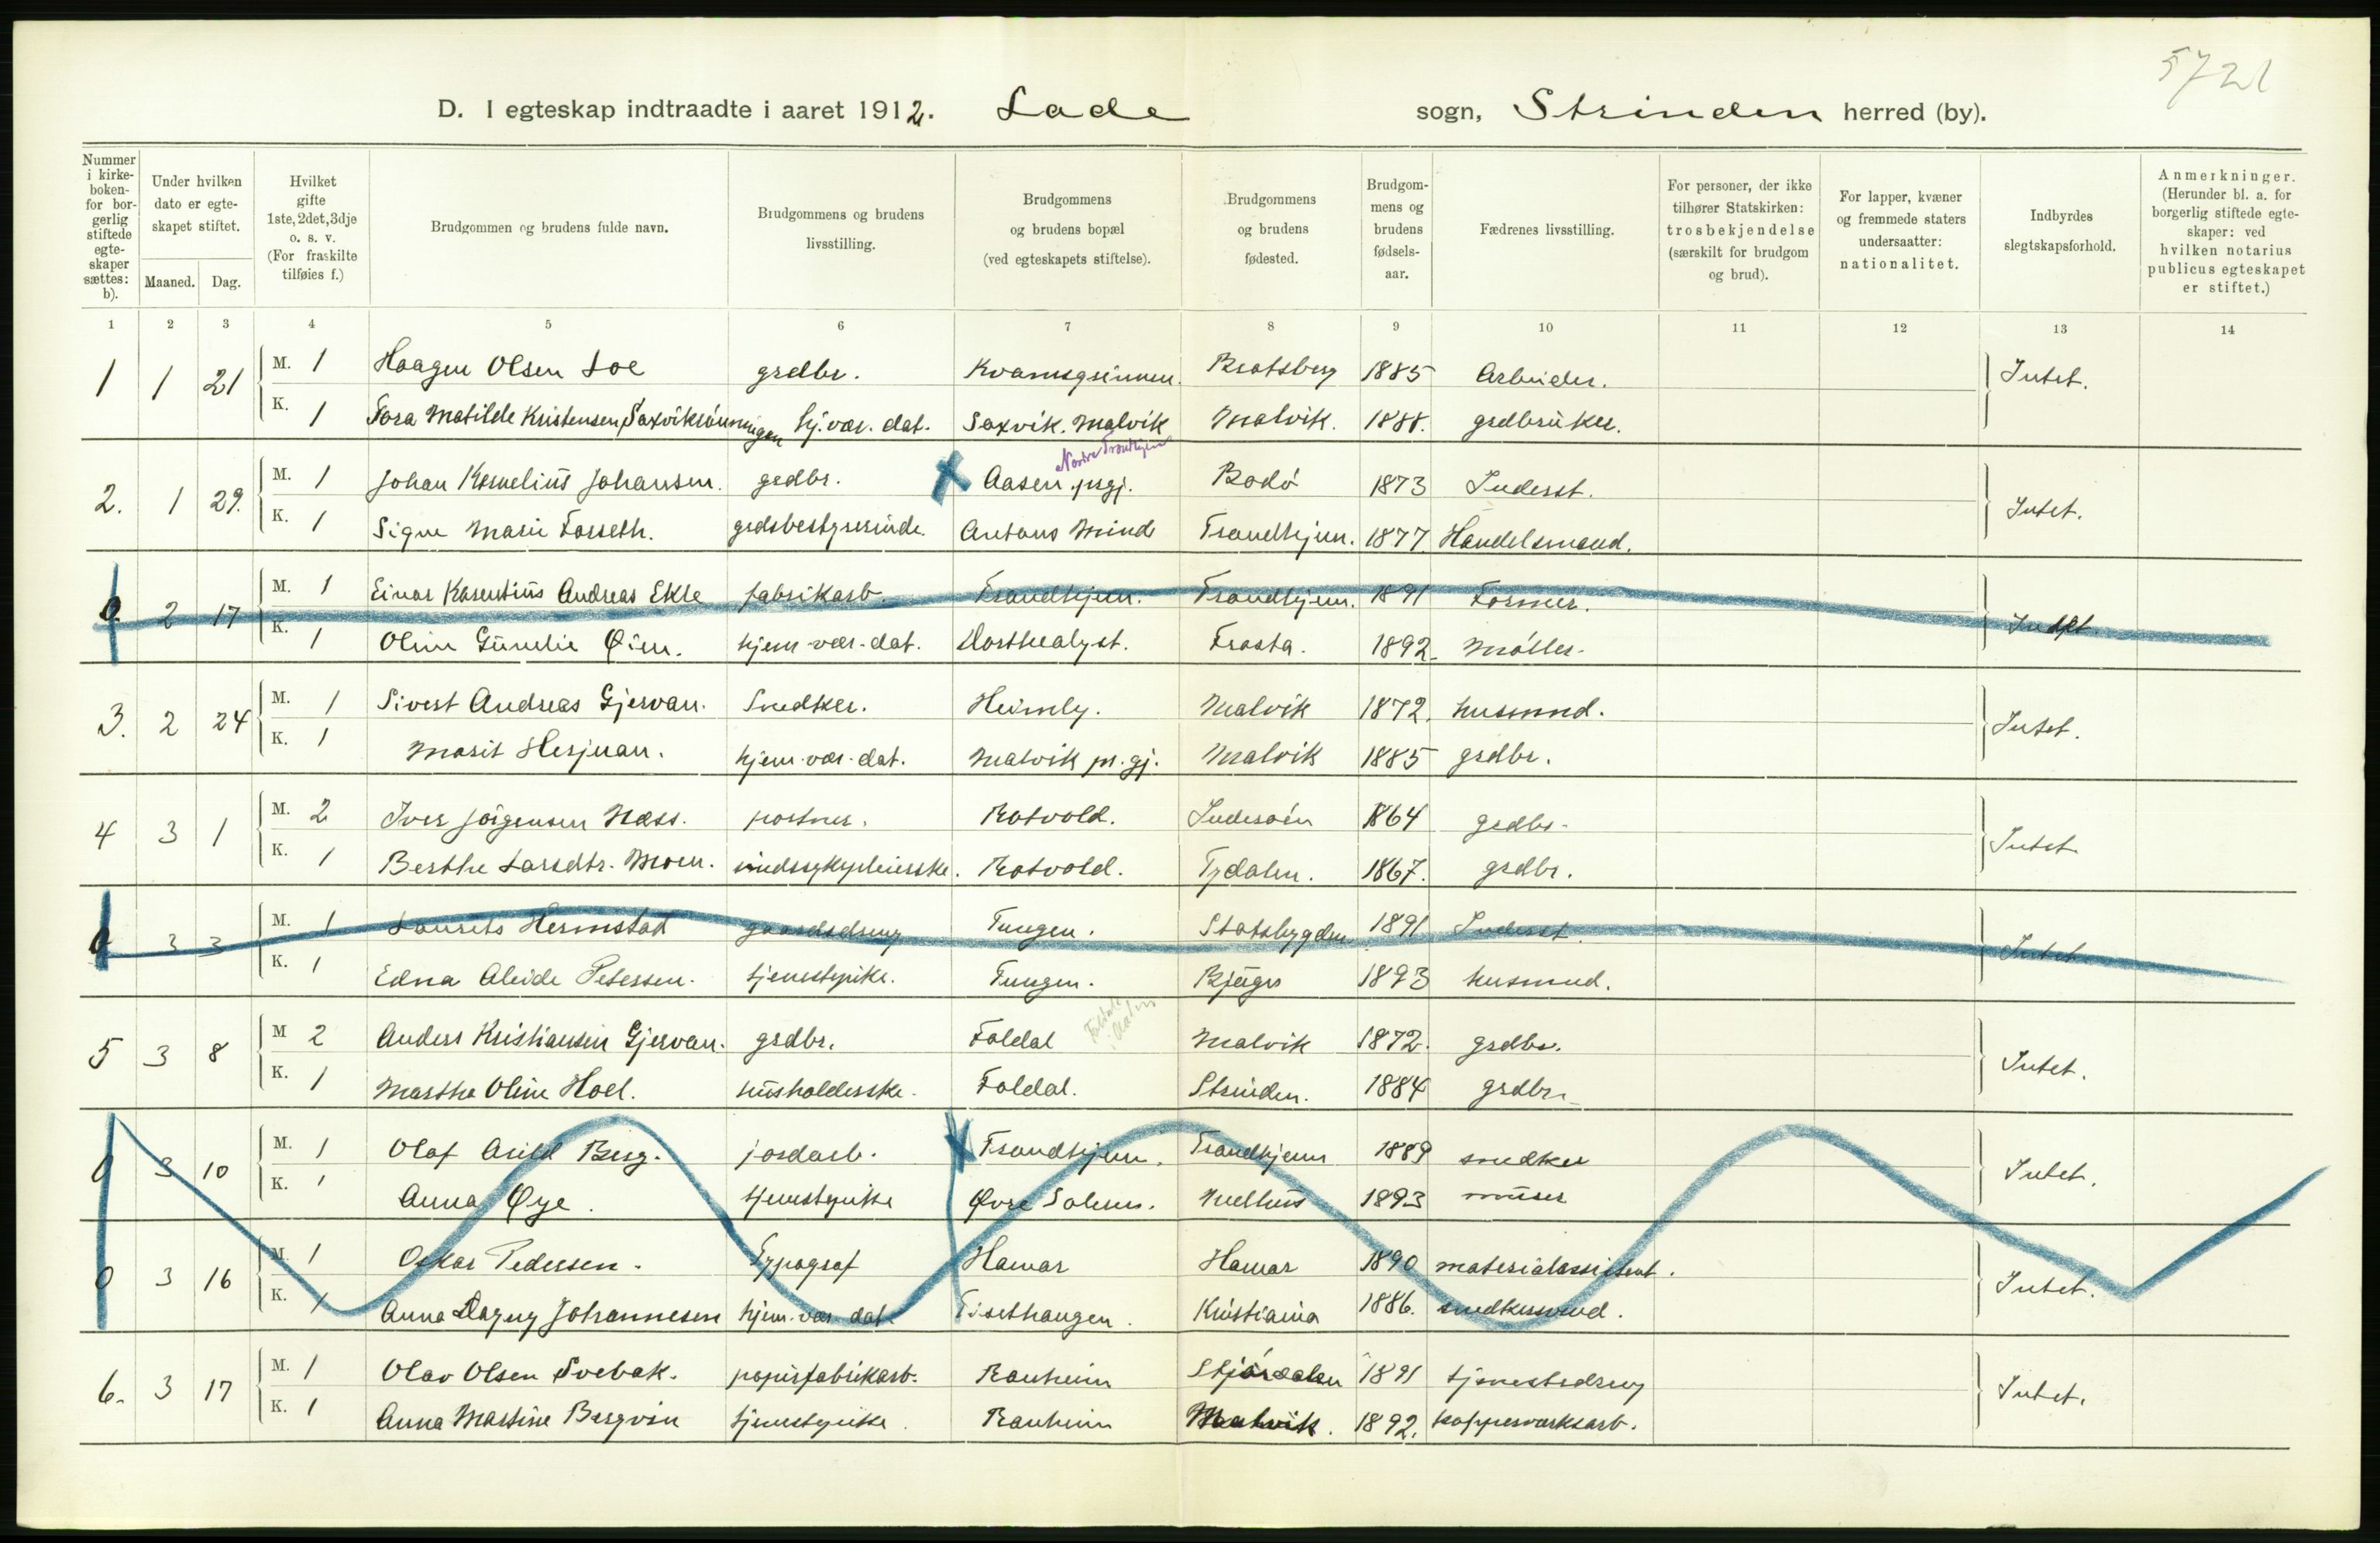 5721
D. I egteskap indtraadte i aaret 1912. Lade sogn, Strinden herred (by).
Nummer i kirke-boken- for bor-gerlig stiftede egte-skaper sættes: b).
Under hvilken dato er egte-skapet stiftet.
Maaned. Dag.
Hvilket gifte 1ste, 2det, 3dje o. s. v. (For fraskilte tilføies f.)
Brudgommen og brudens fulde navn.
Brudgommens og brudens livsstilling.
Brudgommens og brudens bopæl (ved egteskapets stiftelse).
Brudgommens og brudens fødested.
Brudgom-mens og brudens fødsels-aar.
Fædrenes livsstilling.
For personer, der ikke tilhører Statskirken: trosbekjendelse (særskilt for brudgom og brud).
For lapper, kvæner og fremmede staters undersaatter: nationalitet.
Indbyrdes slegtskapsforhold.
Anmerkninger. (Herunder bl. a. for borgerlig stiftede egte-skaper: ved hvilken notarius publicus egteskapet er stiftet.)
1 2 3 4 5 6 7 8 9 10 11 12 13 14
1 1 21 M. 1 Haagen Olsen Loe grdbr. Kvamsgrinnen. Bratsberg 1885 Arbeider. Intet.
K. 1 Tora Matilde Kristensen Saxvikrønningen hj. vær. dat. Saxvik. Malvik Malvik. 1888. grdbruker.
Nordre Trondhjem
2. 1 29. M. 1 Johan Kornelius Johansen. grdbr. Aasen prgj. Bodö 1873 Inderst. Intet.
K. 1 Signe Marie Fosseth. grdsbestyrerinde. Antons Minde Trondhjem. 1877. Handelsmand.
0. 2 17 M. 1 Einar Karentius Andreas Ekle fabrikarb. Trondhjem. Trondhjem. 1891 Former. Intet.
K. 1 Oline Gunelie Øien. hjem. vær. dat. Dorthealyst. Frosta. 1892. Møller.
3. 2 24 M. 1 Sivert Andreas Gjervan. Snedker. Heimly. Malvik 1872. husmnd. Intet.
K. 1 Marit Herjuan. hjem. vær. dat. Malvik pr. gj. Malvik 1885 grdbr.
4 3 1 M. 2 Iver Jörgensen Næss. portner. Rotvold. Inderøen 1864 grdbr. Intet.
K. 1 Berthe Larsdtr. Moen. sindssykepleierske. Rotvold. Tydalen. 1867. grdbr.
0 3 3 M. 1 Laurits Hermstad gaardsdreng Tungen. Statsbygden 1891 Inderst. Intet
K. 1 Edna Aleide Petersen. tjenestepike. Tungen. Bjugn 1893 husmnd.
5 3 8 M 2 Anders Kristiansen Gjervan. grdbr. Foldal Malvik 1872. grdbr. Intet.
K. 1 Martha Oline Hoel. husholderske. Foldal. Strinden. 1884 grdbr.
0 3 10 M. 1 Olaf Arild Berg. jordarb. Trondhjem. Trondhjem 1889 snedker Intet.
K. 1 Anna Øye. tjenestepike Øvre Solem. Melhus 1893 murer
0 3 16 M. 1 Oskar Pedersen. Typograf Hamar Hamar 1890 materialassistent. Intet.
K. 1 Anna Dagny Johannesen hjem. vær. dat. Tisethaugen. Kristiania 1886. snedkersvend.
6. 3 17 M. 1 Olav Olsen Svebak. papirfabrikarb. Ranheim Stjørdalen 1891 tjenestedreng Intet.
K. 1 Anna Martine Bergvin tjenestepike. Ranheim Malvik. 1892. kopperværksarb.